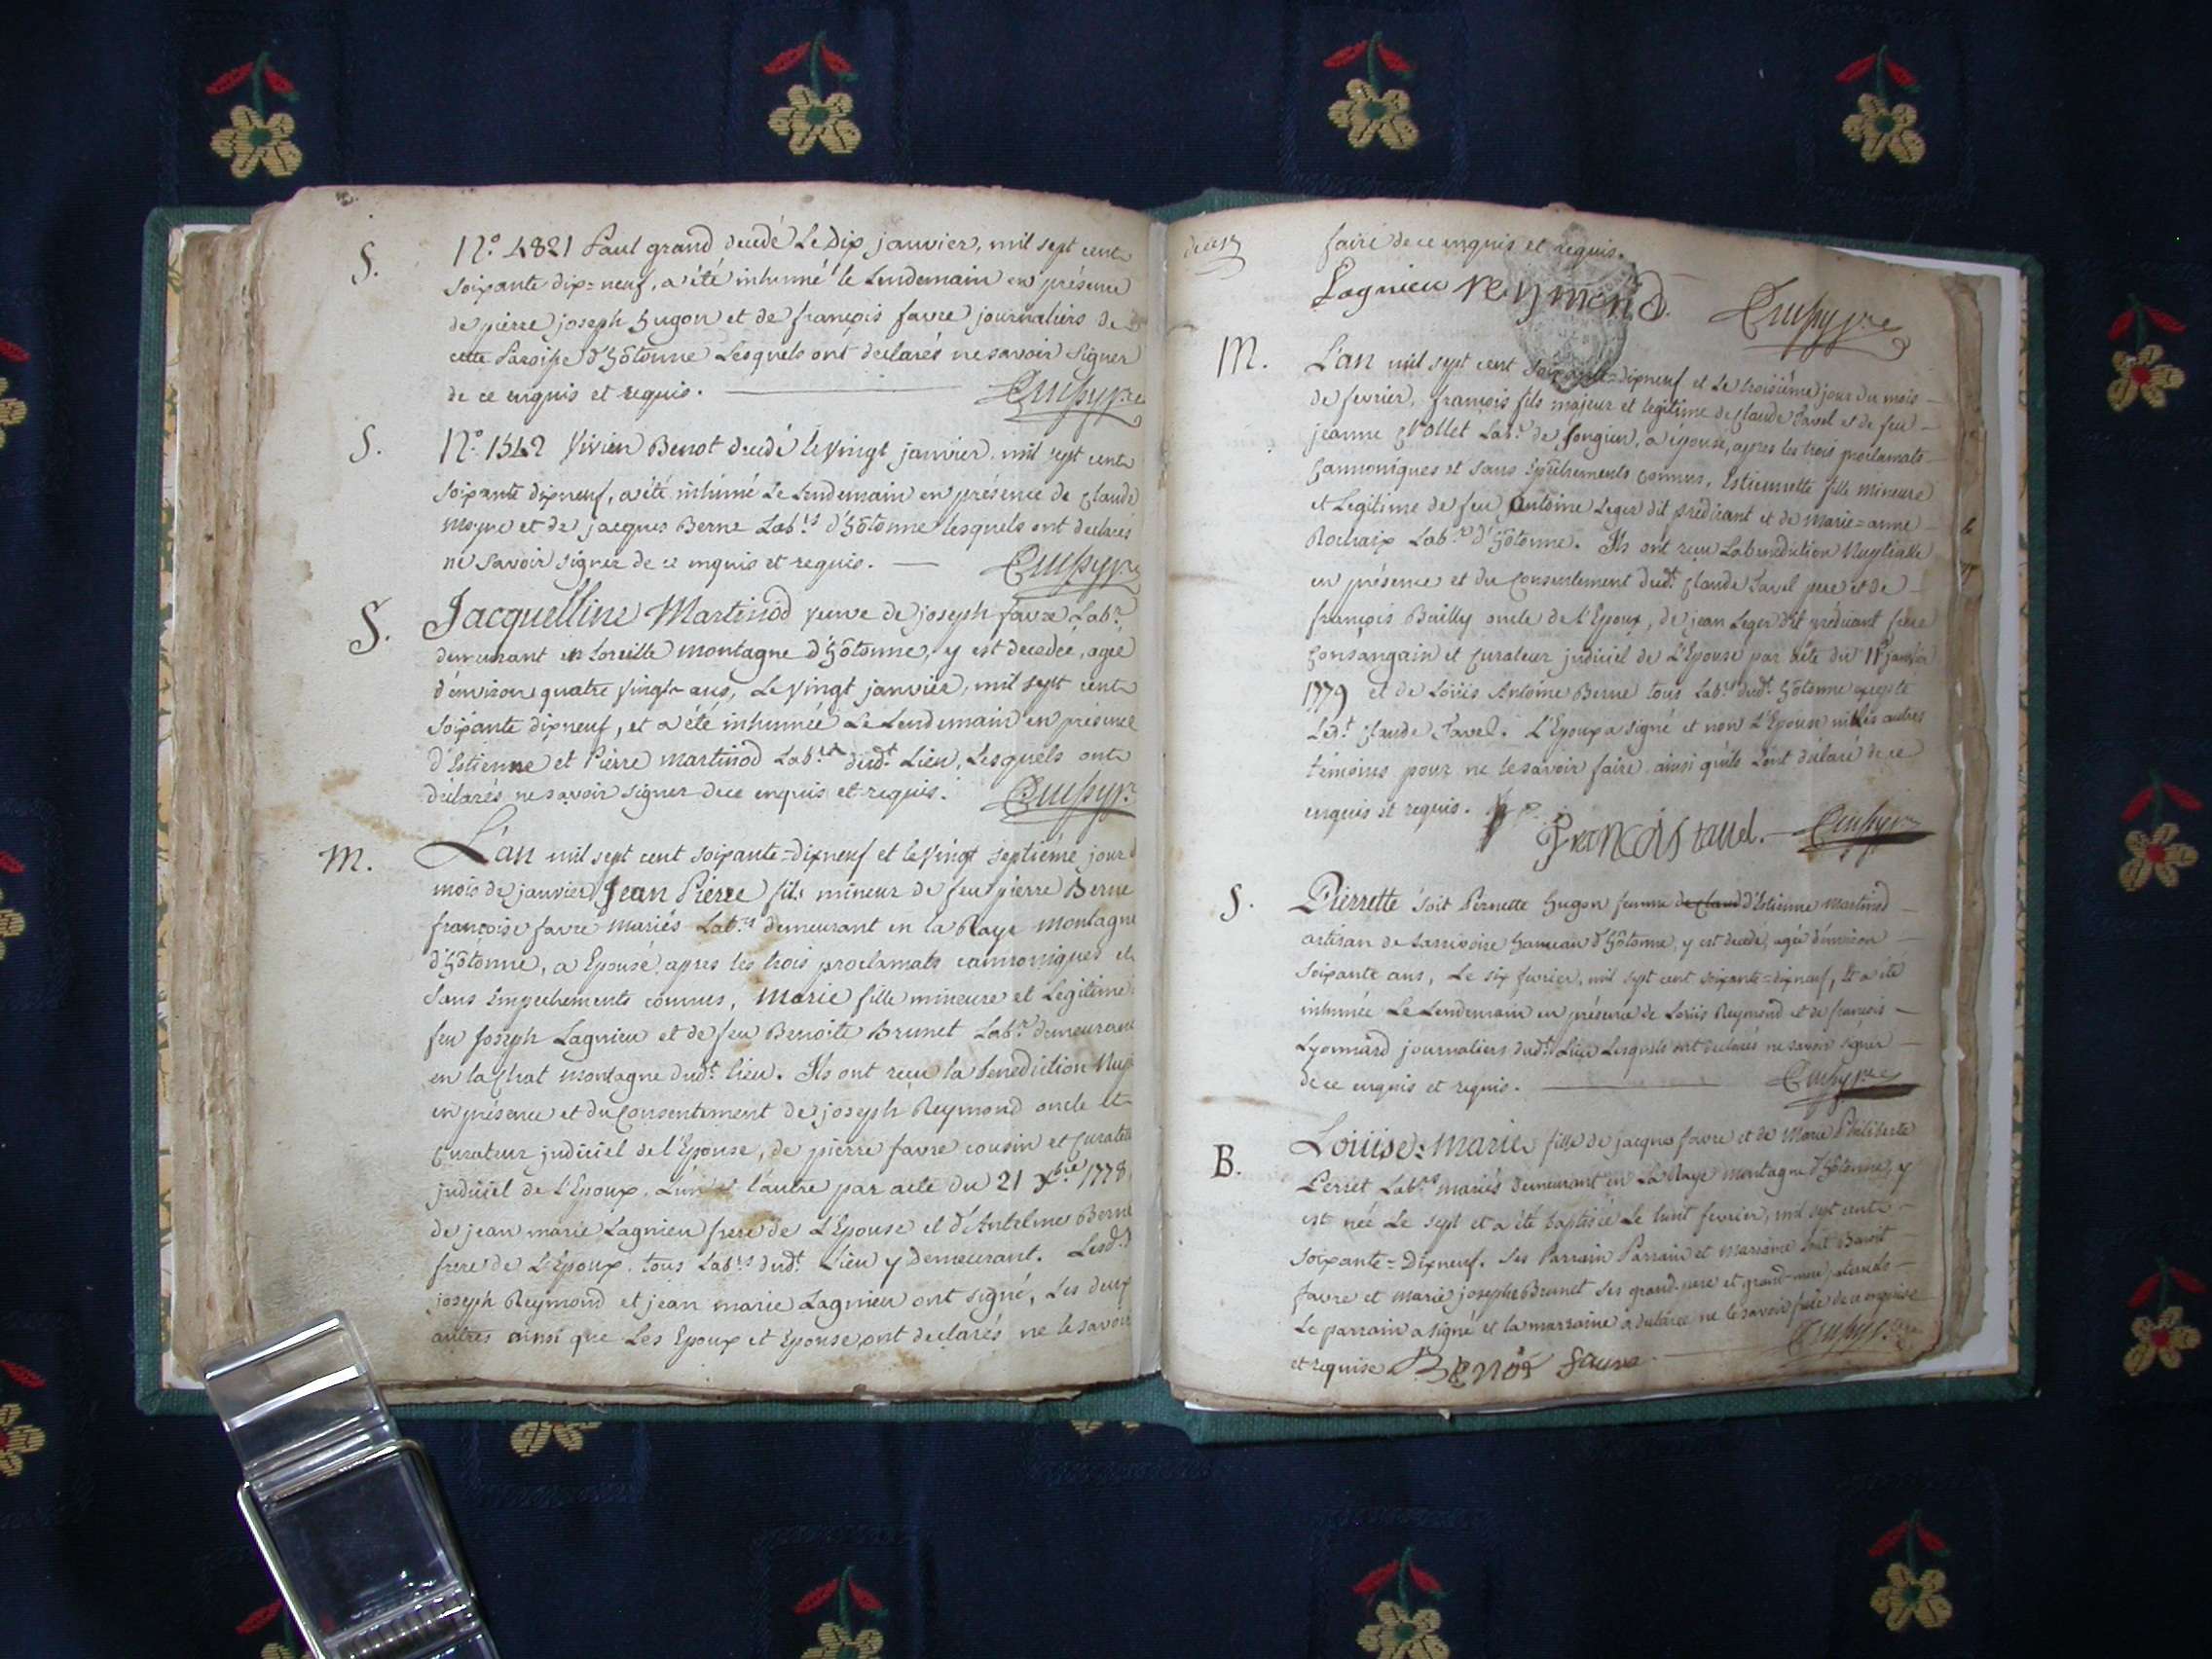 S.
N.o 4821 Paul grand decedé Le Dix janvier, mil sept cent
soixante dix=neuf, a été inhumé le Lendemain en présence
de pierre joseph hugon et de françois favre journaliers de
cette Paroisse d'hôtonne Lesquels ont declarés ne savoir signer
de ce enquis et requis.
S.
N.o 1542 Vivien Benot decedé le vingt janvier, mil sept cent
soixante dixneuf, a été inhumé Le Lendemain en présence de Claude
et de jacques Berne Lab.rs d'hôtonne lesquels ont declarés
ne savoir signer de ce enquis et requis.
S.
Jacquelline Martinod veuve de joseph favre Lab.r
demeurant en montagne d'hôtonne, y est decedée, agée
d'environ quatre vingt ans, Le vingt janvier, mil sept cent
soixante dixneuf, et a été inhumée Le Lendemain en présence
d'Estienne et Pierre martinod Lab.rs dud.t Lieu, Lesquels ont
déclarés ne savoir signer de ce enquis et requis.
M.
L'an mil sept cent soixante=dixneuf et le vingt septiéme jour
mois de janvier Jean Pierre fils mineur de feu pierre Berne
françoise favre mariés Lab.rs demeurant en la Raye montagne
d'hôtonne, a Epousé, apres les trois proclamats cannoniques et
sans Empechements connus, Marie fille mineure et Legitime
feu Joseph Lagnieu et de feu Benoite Brunet Lab.rs demeurant
en la Chat montagne dud.t lieu. Ils ont reçu la benediction Nup
en présence et du Consentement de joseph Reymond oncle et
Curateur judiciel de l'Epouse, de pierre favre cousin et Curateur
judiciel de L'Epoux, L'un et l'autre par acte du 21 Xbre 1778,
de jean marie Lagnieu frere de L'Epouse et d'Antelme Berne
frere de L'Epoux, tous Lab.rs dud.t Lieu y Demeurant. Lesd.
joseph Reymond et jean marie Lagnieu ont signé, Les deux
autres ainsi que Les Epoux et Epouse ont declarés ne le savoir
faire de ce enquis et requis.
Lagnieu reymond.
M.
L'an mil sept cent soixante=dixneuf et Le troisiéme jour du mois
de fevrier, françois fils majeur et legitime de Claude Tavel et de feu
jeanne Lab.r de Songieu, a épousé, apres les trois proclamats
Cannoniques et sans Empêchements connus, Estiennette fille mineure
et Legitime de feu Antoine Leger dit prédicant et de marie=anne
Rochaix Lab.r d'hôtonne. Ils ont reçu La benediction Nuptialle
en présence et du Consentement dud.t Claude Tavel pere et de
françois Bailly oncle de l'Epoux, de jean Leger dit prédicant frere
Consanguin et Curateur judiciel de L'Epouse par acte du janvier
1779 et de Loüis Antoine Berne tous Lab.rs dud.t hôtonne excepté
Led.t Claude Tavel. L'Epoux a signé et non L'Epouse ni les autres
témoins pour ne le savoir faire ainsi qu'ils l'ont déclaré de ce
enquis et requis.
francois tavel.
S.
Pierrette soit Pernette hugon femme d'Estienne martinod
artisan de hameau d'hôtonne, y est decedé, agée d'environ
soixante ans, Le six fevrier, mil sept cent soixante=dixneuf, Et a été
inhumée Le Lendemain en présence de Loüis Reymond et de françois
Lyonnard journaliers dud.t Lieu Lesquels ont declarés ne savoir signer
de ce enquis et requis.
B.
Loüise=Marie fille de jacques favre et de Marie Philiberte
Perret Lab.rs mariés demeurant en La Raye montagne d'hôtonne, y
est née Le sept et a été baptisée Le huit fevrier, mil sept cent
soixante=Dixneuf. Ses Parrain Parrain et marraine sont Benoit
favre et marie josephe Brunet ses grand-pere et grand-mere paternels
Le parrain a signé et la marraine a déclarée ne le savoir faire de ce enquise
et requise Benoit favre